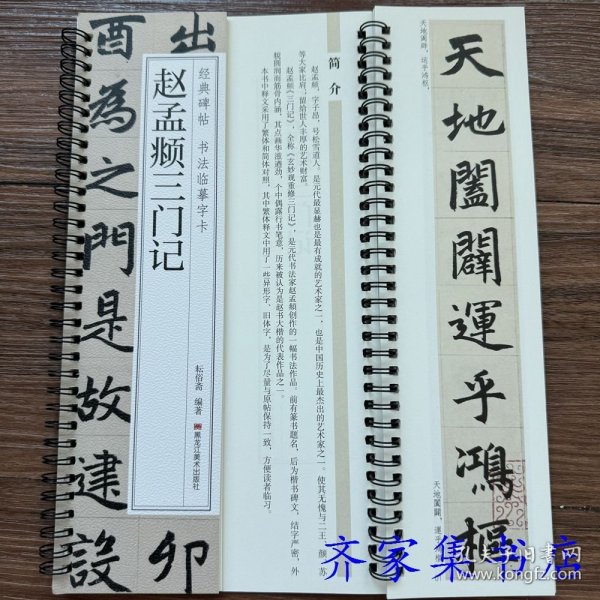 出
卯
酉為之門是故建設
经典碑帖 书法临摹字卡
赵孟頫三门记
耘俗斋 编著
黑龙江美术出版社
简介
赵孟頫，字子昂，号松雪道人。是元代最显赫也是最有成就的艺术家之一，也是中国历史上最杰出的艺术家之一。使其无愧与二王、颜、苏
等大家比肩，留给世人丰厚的艺术财富。
赵孟頫《三门记》，全称《玄妙观重修三门记》，是元代书法家赵孟頫创作的一幅书法作品。前有篆书题名，后为楷书碑文，结字严密，外
貌圆润而筋骨内涵，其点画华滋遒劲，个中偶露行书笔意，历来被认为是赵书大楷的代表作品之一。
本书中释文采用了繁体和简体对照，其中繁体释文中用了一些异形字、旧体字，是为了尽量与原帖保持一致，方便读者临习。
天地阖辟，运乎鸿枢，
天地闔闢運乎鴻樞
天地闔闢，運乎
齐家集书店
孔夫子旧书网
www.kongfz.com